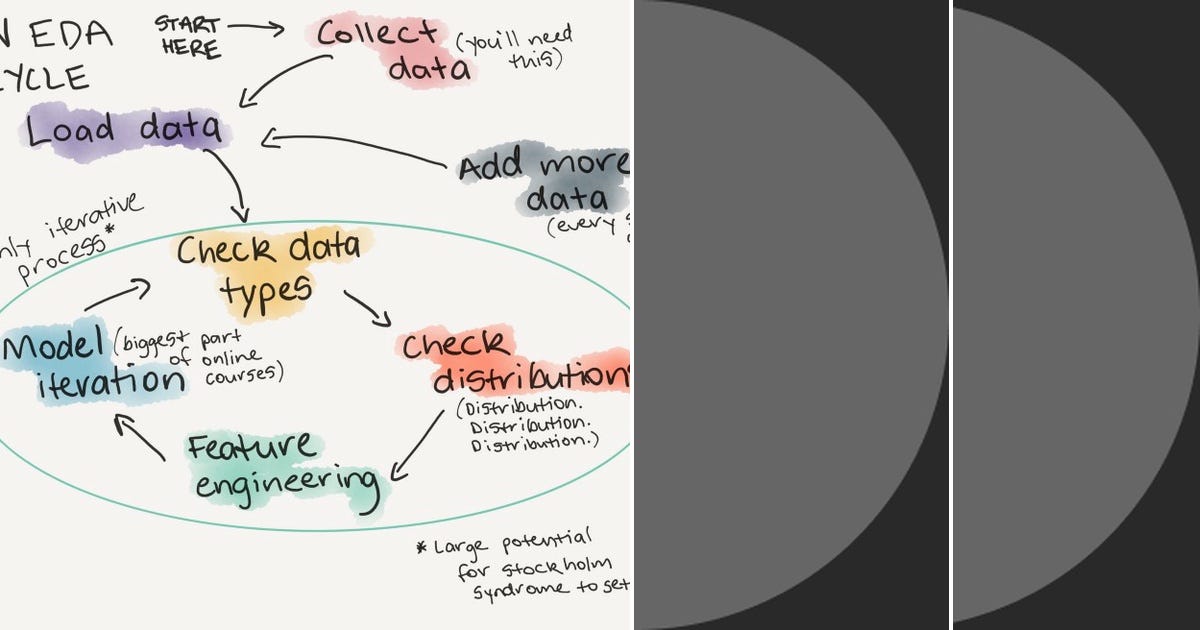 EDA
START
HERE
Collect
data
(you'll need
this)
Load data
Add more
data
(every
iterative
process*
Check data
types
Model
iteration
(biggest part
of online
courses)
Check
distribution
(Distribution.
Distribution.
Distribution.)
Feature
engineering
* Large potential
for Stockholm
Syndrome to set